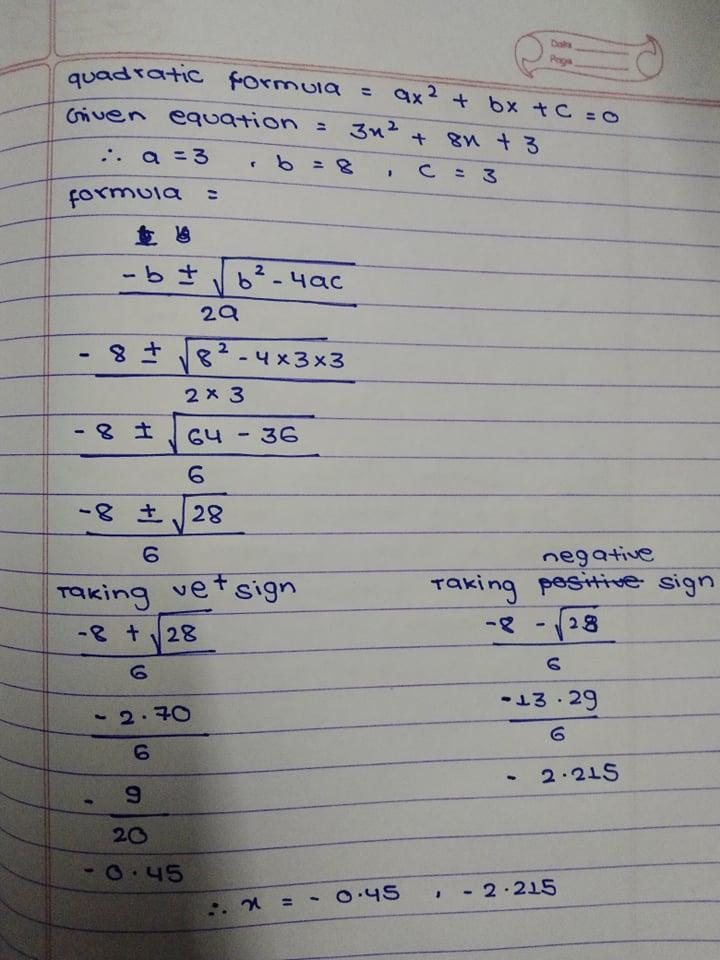 Date
Page
quadratic formula = ax² + bx + c = 0
Given equation = 3x² + 8x + 3
∴ a = 3 , b = 8 , c = 3
formula =
-b ± √b² - 4ac
2a
- 8 ± √8² - 4 × 3 × 3
2 × 3
-8 ± √64 - 36
6
-8 ± √28
6
Taking ve⁺ sign
-8 + √28
6
- 2.70
6
- 9
20
- 0.45
negative
Taking positive sign
-8 - √28
6
-13.29
6
- 2.215
∴ x = - 0.45 , - 2.215